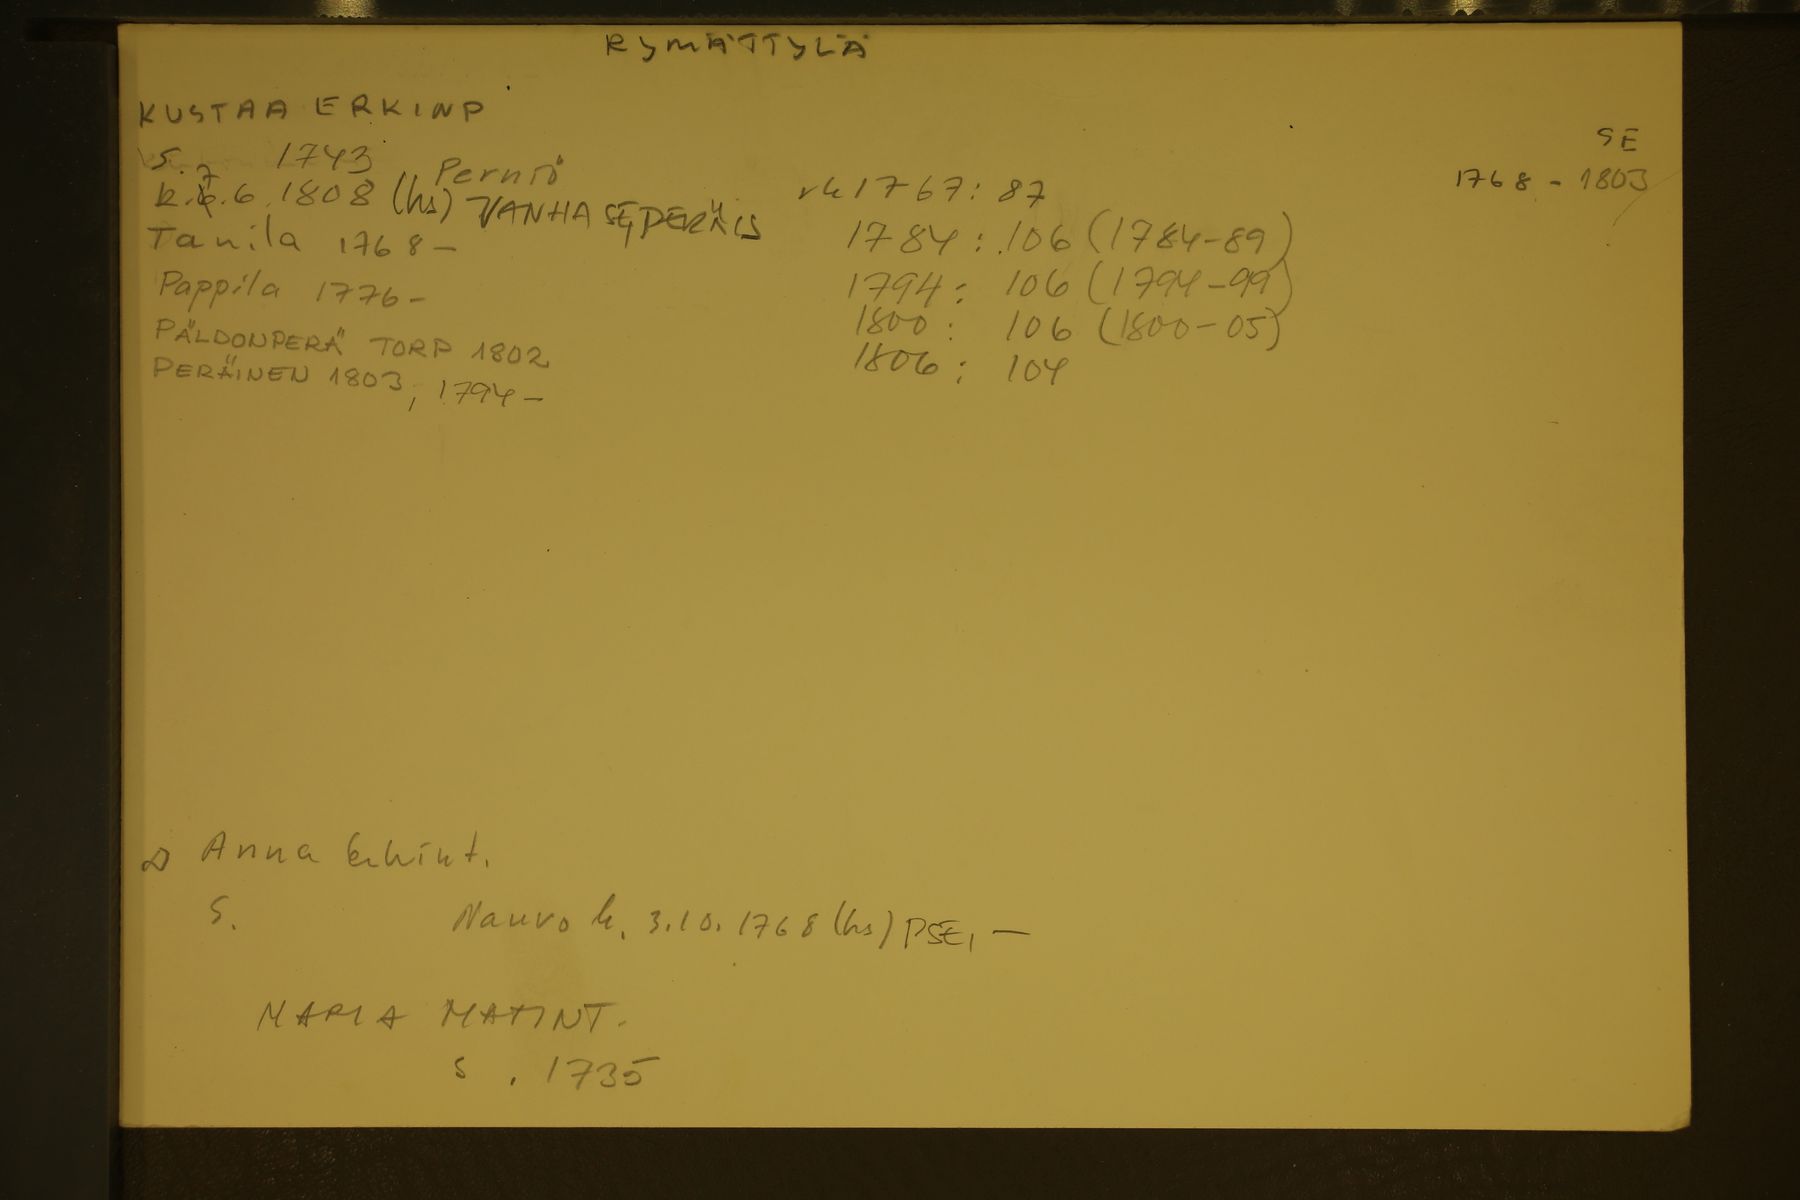 RYMÄTTYLÄ
KUSTAA ERKINP
SE
s. 1743 Perniö
1768 - 1803
k. 7.6.1808 (hs) VANHA SE, PERÄIS
rk 1767: 87
Tanila 1768 -
1784: 106 (1784-89)
Pappila 1776 -
1794: 106 (1794-99)
1800: 106 (1800-05)
PÄLDONPERÄ TORP 1802
1806: 104
PERÄINEN 1803, 1794 -
Anna Erkint.
s. Nauvo k. 3.10.1768 (hs) PSE, —
MARIA MATINT.
s. 1735